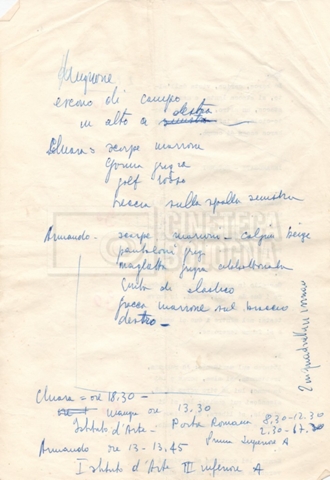 Mugnone
escono di campo
destra
in alto a sinistra
Chiara = scarpe marrone
Gonna grigia
golf rosso
sulla spalla sinistra
Armando - scarpe marroni - calzini beige
pantaloni grigi
maglietta grigia abbottonata
di elastico
giacca marrone sul braccio
destro -
Chiara = ore 18,30 -
mangia ore 13.30
Istituto d'Arte - Porta Romana 8,30-12.30
2.30-17.30
Prima Superiore A
Armando ore 13 - 13,45
Istituto d'Arte III inferiore A
CINETECA
BOLOGNA